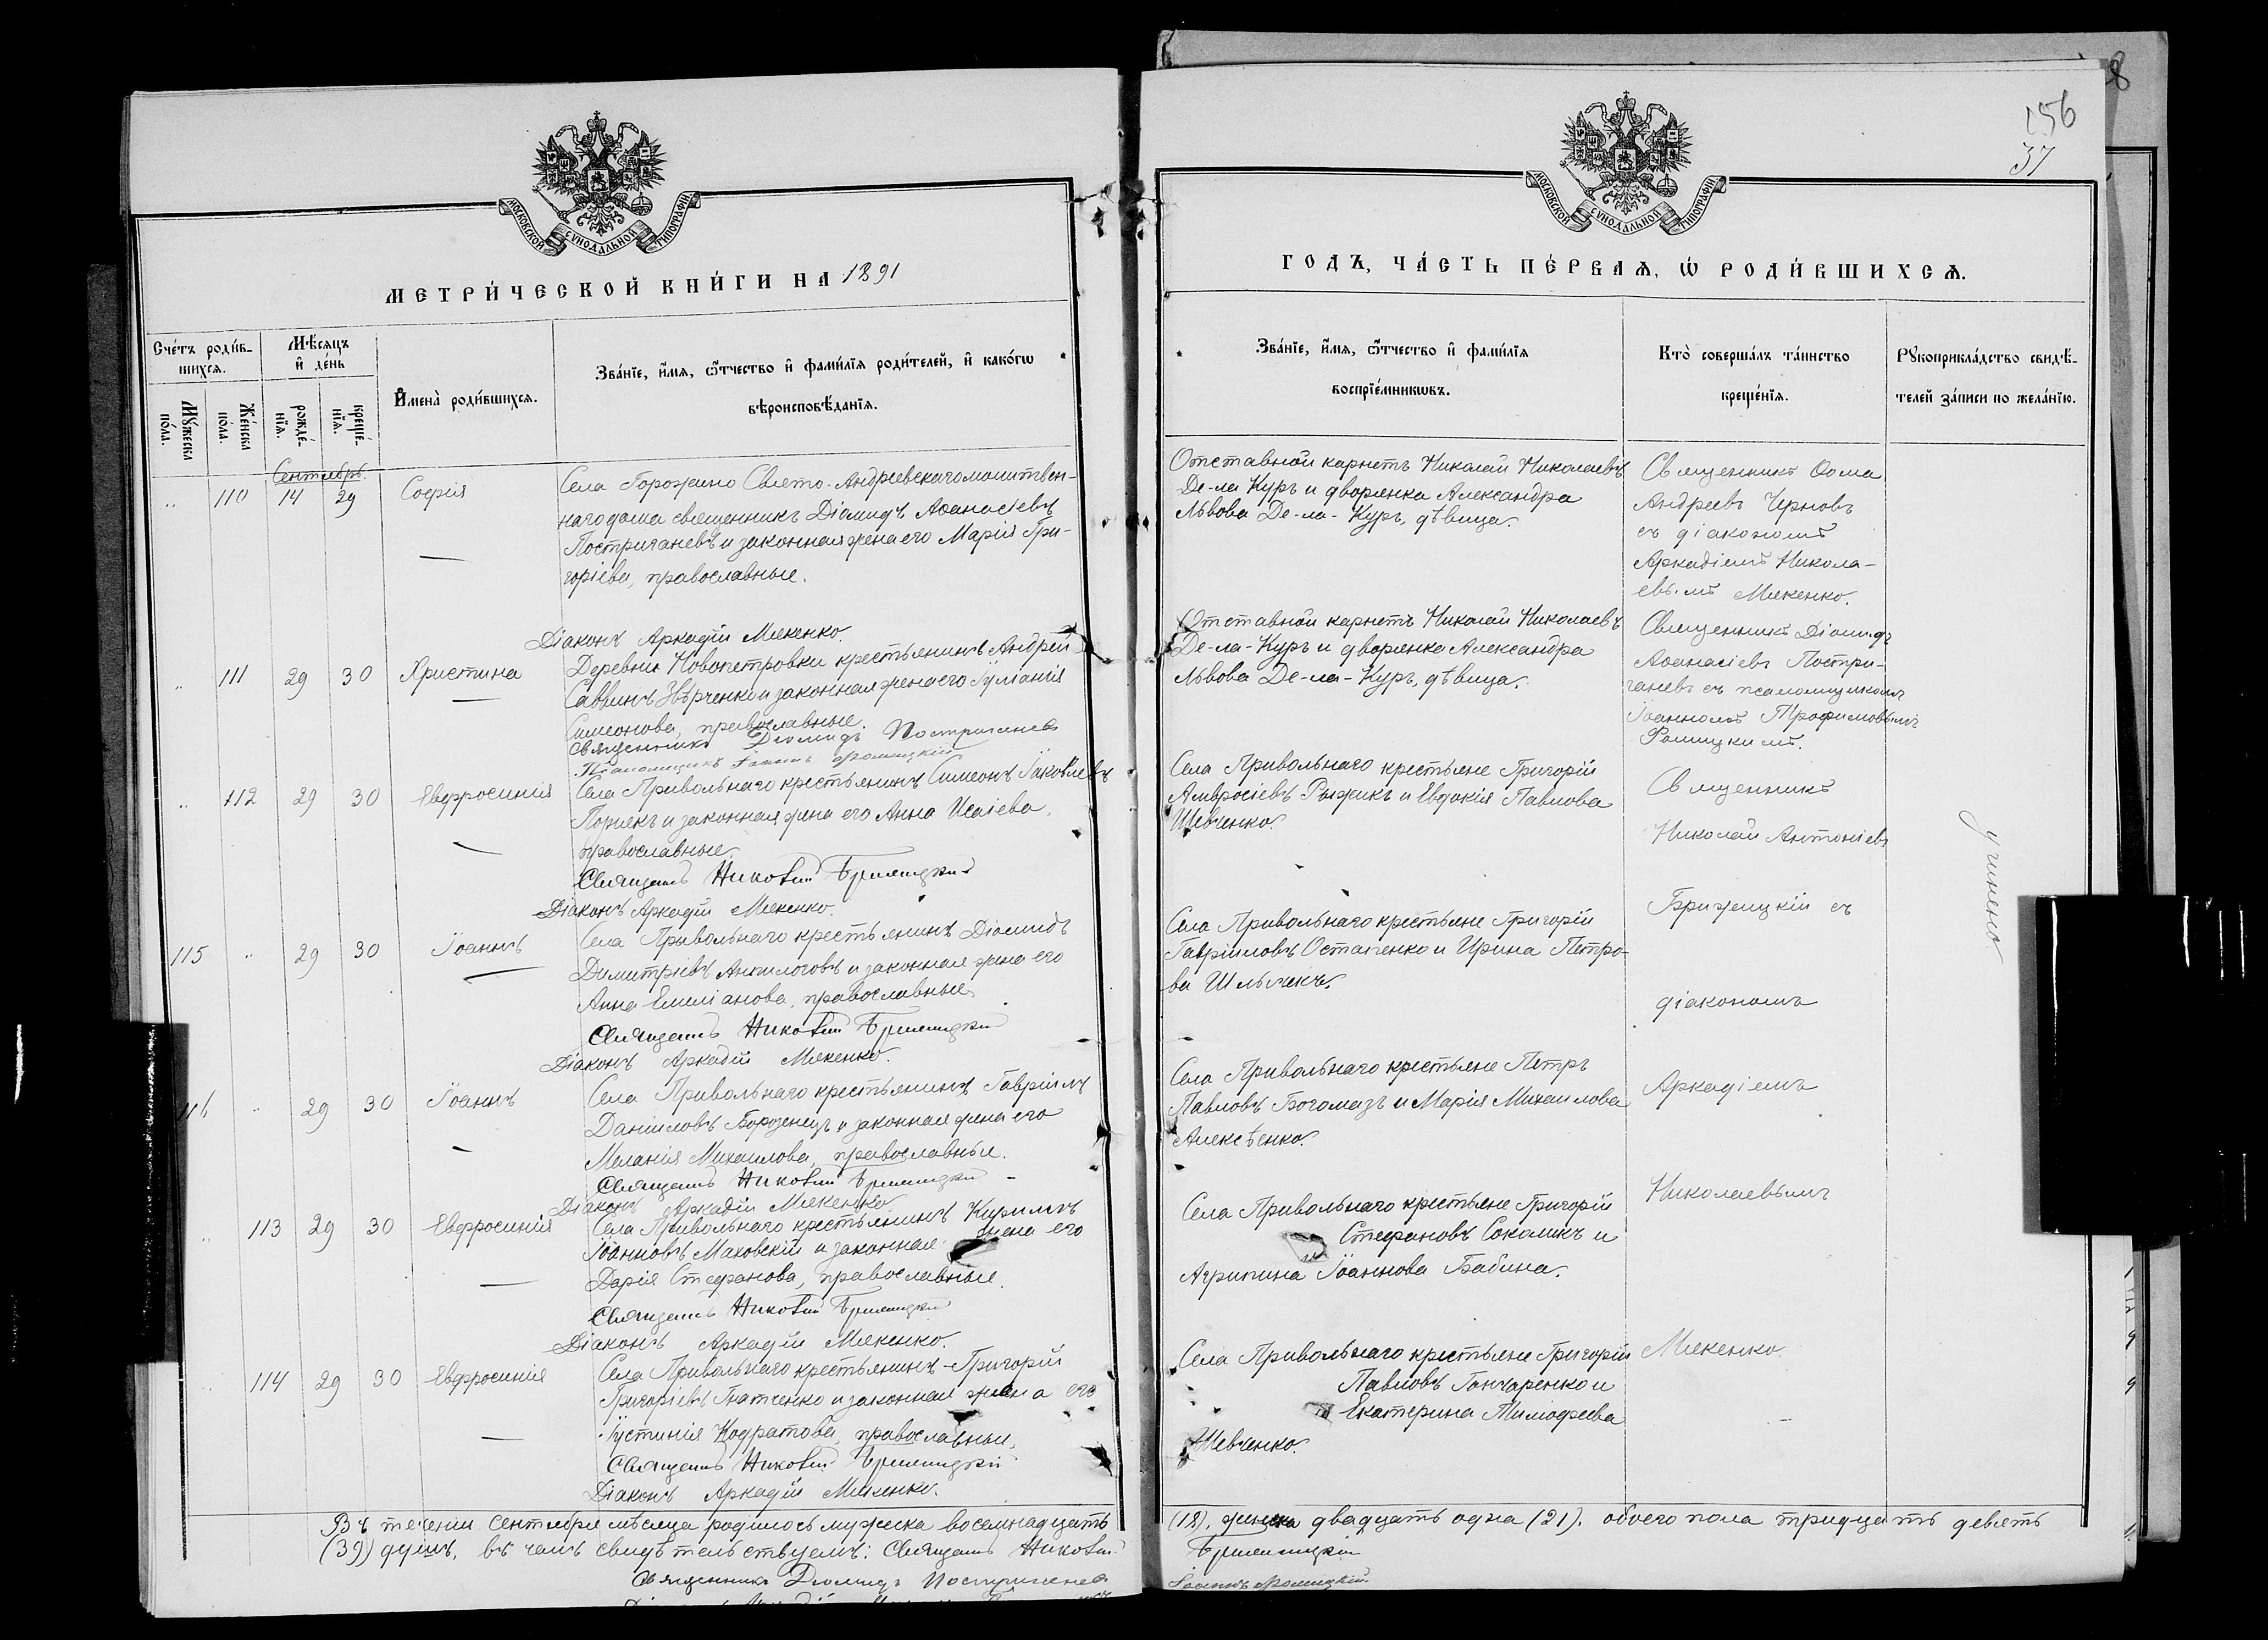 156
37
МОСКОВСКОЙ СУНОДАЛЬНОЙ ТИПОГРАФІИ
МЕТРИ́ЧЕСКОЙ КНИ́ГИ НА 1891
Сче́тъ роди́в-
шихсѧ.
Мѣ́сѧцъ
и҆ де́нь
Мꙋ́жеска
по́ла.
Же́нска
по́ла.
рожде́-
нїѧ.
креще́-
нїѧ.
И҆мена̀ роди́вшихсѧ.
Зва́нїе, и҆́мѧ, ѻ҆́тчество и҆ фами́лїѧ роди́телей, и҆ како́гѡ
вѣроисповѣ́данїѧ.
Сентябрь.
110 14 29 Софія
Села Горожино Свято-Андреевскаго молитвен-
наго дома священникъ Діомидъ Аѳанасіевъ
Постригановъ и законная жена его Марія Гри-
горіева, православные.
Діаконъ Аркадій Мякенко.
111 29 30 Христина
Деревни Новопетровки крестьянинъ Андрей
Саввинъ Звѣрченко и законная жена его Іуліанія
Симеонова, православные.
Священникъ Діомидъ Постриганевъ
Псаломщикъ Іоаннъ Ромицкій
112 29 30 Евфросинія
Села Привольнаго крестьянинъ Симеонъ Іаковлевъ
и законная жена его Анна Исаіева,
православные.
Священ. Николай Брижицкій
Діаконъ Аркадій Мякенко.
115 29 30 Іоаннъ
Села Привольнаго крестьянинъ Діомидъ
Димитріевъ Анпилоговъ и законная жена его
Анна Емеліанова, православные.
Священ. Николай Брижицкій
Діаконъ Аркадій Мякенко.
116 29 30 Іоаннъ
Села Привольнаго крестьянинъ Гавріилъ
Даніиловъ Борозенецъ и законная жена его
Меланія Михаилова, православные.
Священ. Николай Брижицкій
Діаконъ Аркадій Мякенко.
113 29 30 Евфросинія
Села Привольнаго крестьянинъ Кириллъ
Іоанновъ Маховскій и законная жена его
Дарія Стефанова, православные.
Священ. Николай Брижицкій
Діаконъ Аркадій Мякенко.
114 29 30 Евфросинія
Села Привольнаго крестьянинъ Григорій
Григоріевъ и законная жена его
Іустинія Кодратова, православные.
Священ. Николай Брижицкій
Діаконъ Аркадій Мякенко.
Въ теченіи Сентября мѣсяца родилось мужеска восемнадцать
(39) душъ, въ чемъ свидѣтельствуемъ: Священ. Николай
Священникъ Діомидъ Постриганевъ
МОСКОВСКОЙ СУНОДАЛЬНОЙ ТИПОГРАФІИ
ГОДЪ, ЧА́СТЬ ПЕ́РВАѦ, Ѡ҆ РОДИ́ВШИХСѦ.
Зва́нїе, и҆́мѧ, ѻ҆́тчество и҆ фами́лїѧ
воспрїе́мникѡвъ.
Кто̀ соверша́лъ та́инство
креще́нїѧ.
Рꙋкоприкла́дство свидѣ́-
телей за́писи по жела́нїю.
Отставной карнетъ Николай Николаевъ
Де-ла Куръ и дворянка Александра
Львова Де-ла-Куръ, дѣвица.
Священникъ Ѳома
Андреевъ Черновъ
съ діакономъ
Аркадіемъ Никола-
евымъ Мякенко.
Отставной карнетъ Николай Николаевъ
Де-ла-Куръ и дворянка Александра
Львова Де-ла-Куръ, дѣвица.
Священникъ Діомидъ
Аѳанасіевъ Постри-
ганевъ съ псаломщикомъ
Іоанномъ Трофимовымъ
Ромицкимъ.
Села Привольнаго крестьяне Григорій
Амвросіевъ Рыжикъ и Евдокія Павлова
Шевченко.
Священникъ
Николай Антоніевъ
Брижицкій съ
діакономъ
Аркадіемъ
Николаевымъ
Мякенко.
учинено
Села Привольнаго крестьяне Григорій
Гавріиловъ Остапенко и Ирина Петро-
ва
Села Привольнаго крестьяне Петръ
Павловъ Богомазъ и Марія Михаилова
Алексѣенко.
Села Привольнаго крестьяне Григорій
Стефановъ Соколикъ и
Агрипина Іоаннова Бабина.
Села Привольнаго крестьяне Григорій
Павловъ Гончаренко и
Екатерина Тимофеева
Шевченко.
(18), женска двадцать одна (21), обоего пола тридцать девять
Брижицкій
Іоаннъ Ромицкій